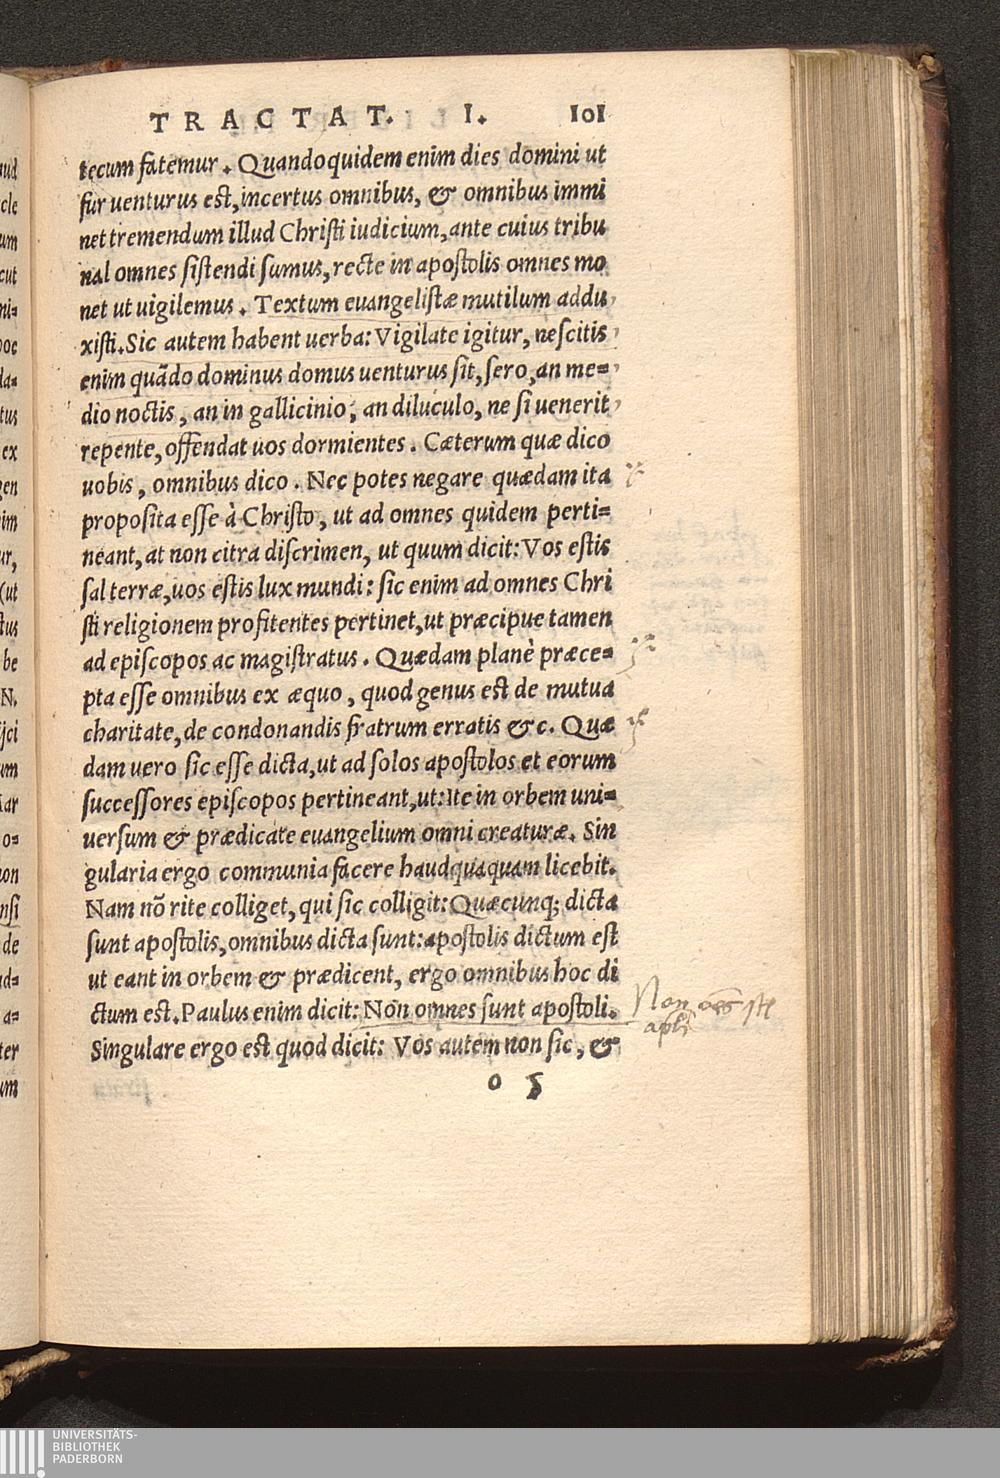 TRACTAT. I. 101
tecum fatemur. Quandoquidem enim dies domini ut
fur uenturus est, incertus omnibus, & omnibus immi
net tremendum illud Christi iudicium, ante cuius tribu
nal omnes sistendi sumus, recte in apostolis omnes mo
net ut uigilemus. Textum euangelistæ mutilum addu
xisti. Sic autem habent uerba: Vigilate igitur, nescitis
enim quãdo dominus domus uenturus sit, sero, an me=
dio noctis, an in gallicinio, an diluculo, ne si uenerit
repente, offendat uos dormientes. Cæterum quæ dico
uobis, omnibus dico. Nec potes negare quædam ita
proposita esse à Christo, ut ad omnes quidem perti=
neant, at non citra discrimen, ut quum dicit: Vos estis
sal terræ, uos estis lux mundi: sic enim ad omnes Chri
sti religionem profitentes pertinet, ut præcipue tamen
ad episcopos ac magistratus. Quædam planè præce=
pta esse omnibus ex æquo, quod genus est de mutua
charitate, de condonandis fratrum erratis &c. Quæ
dam uero sic esse dicta, ut ad solos apostolos et eorum
successores episcopos pertineant, ut: Ite in orbem uni=
uersum & prædicate euangelium omni creaturæ. Sin
gularia ergo communia facere haudquaquam licebit.
Nam nõ rite colliget, qui sic colligit: Quæcunq; dicta
sunt apostolis, omnibus dicta sunt: apostolis dictum est
ut eant in orbem & prædicent, ergo omnibus hoc di
ctum est. Paulus enim dicit: Non omnes sunt apostoli.
Singulare ergo est quod dicit: Vos autem non sic, &
o 5
Non
apli
UNIVERSITÄTS-
BIBLIOTHEK
PADERBORN